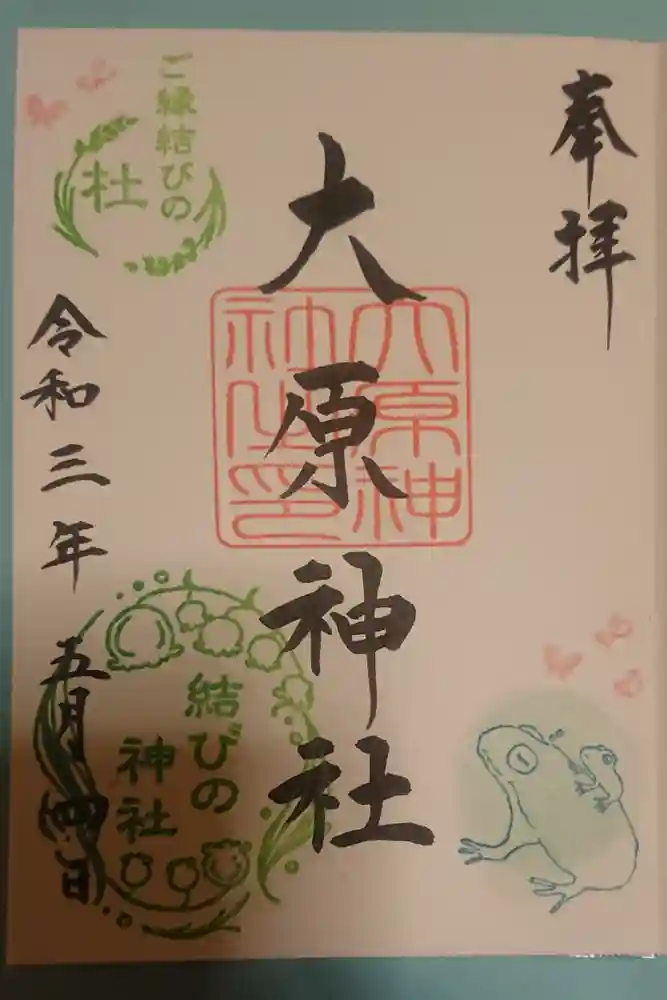 奉拝
大原神社
大原神社之印
ご縁結びの
杜
令和三年 五月四日
結びの
神社